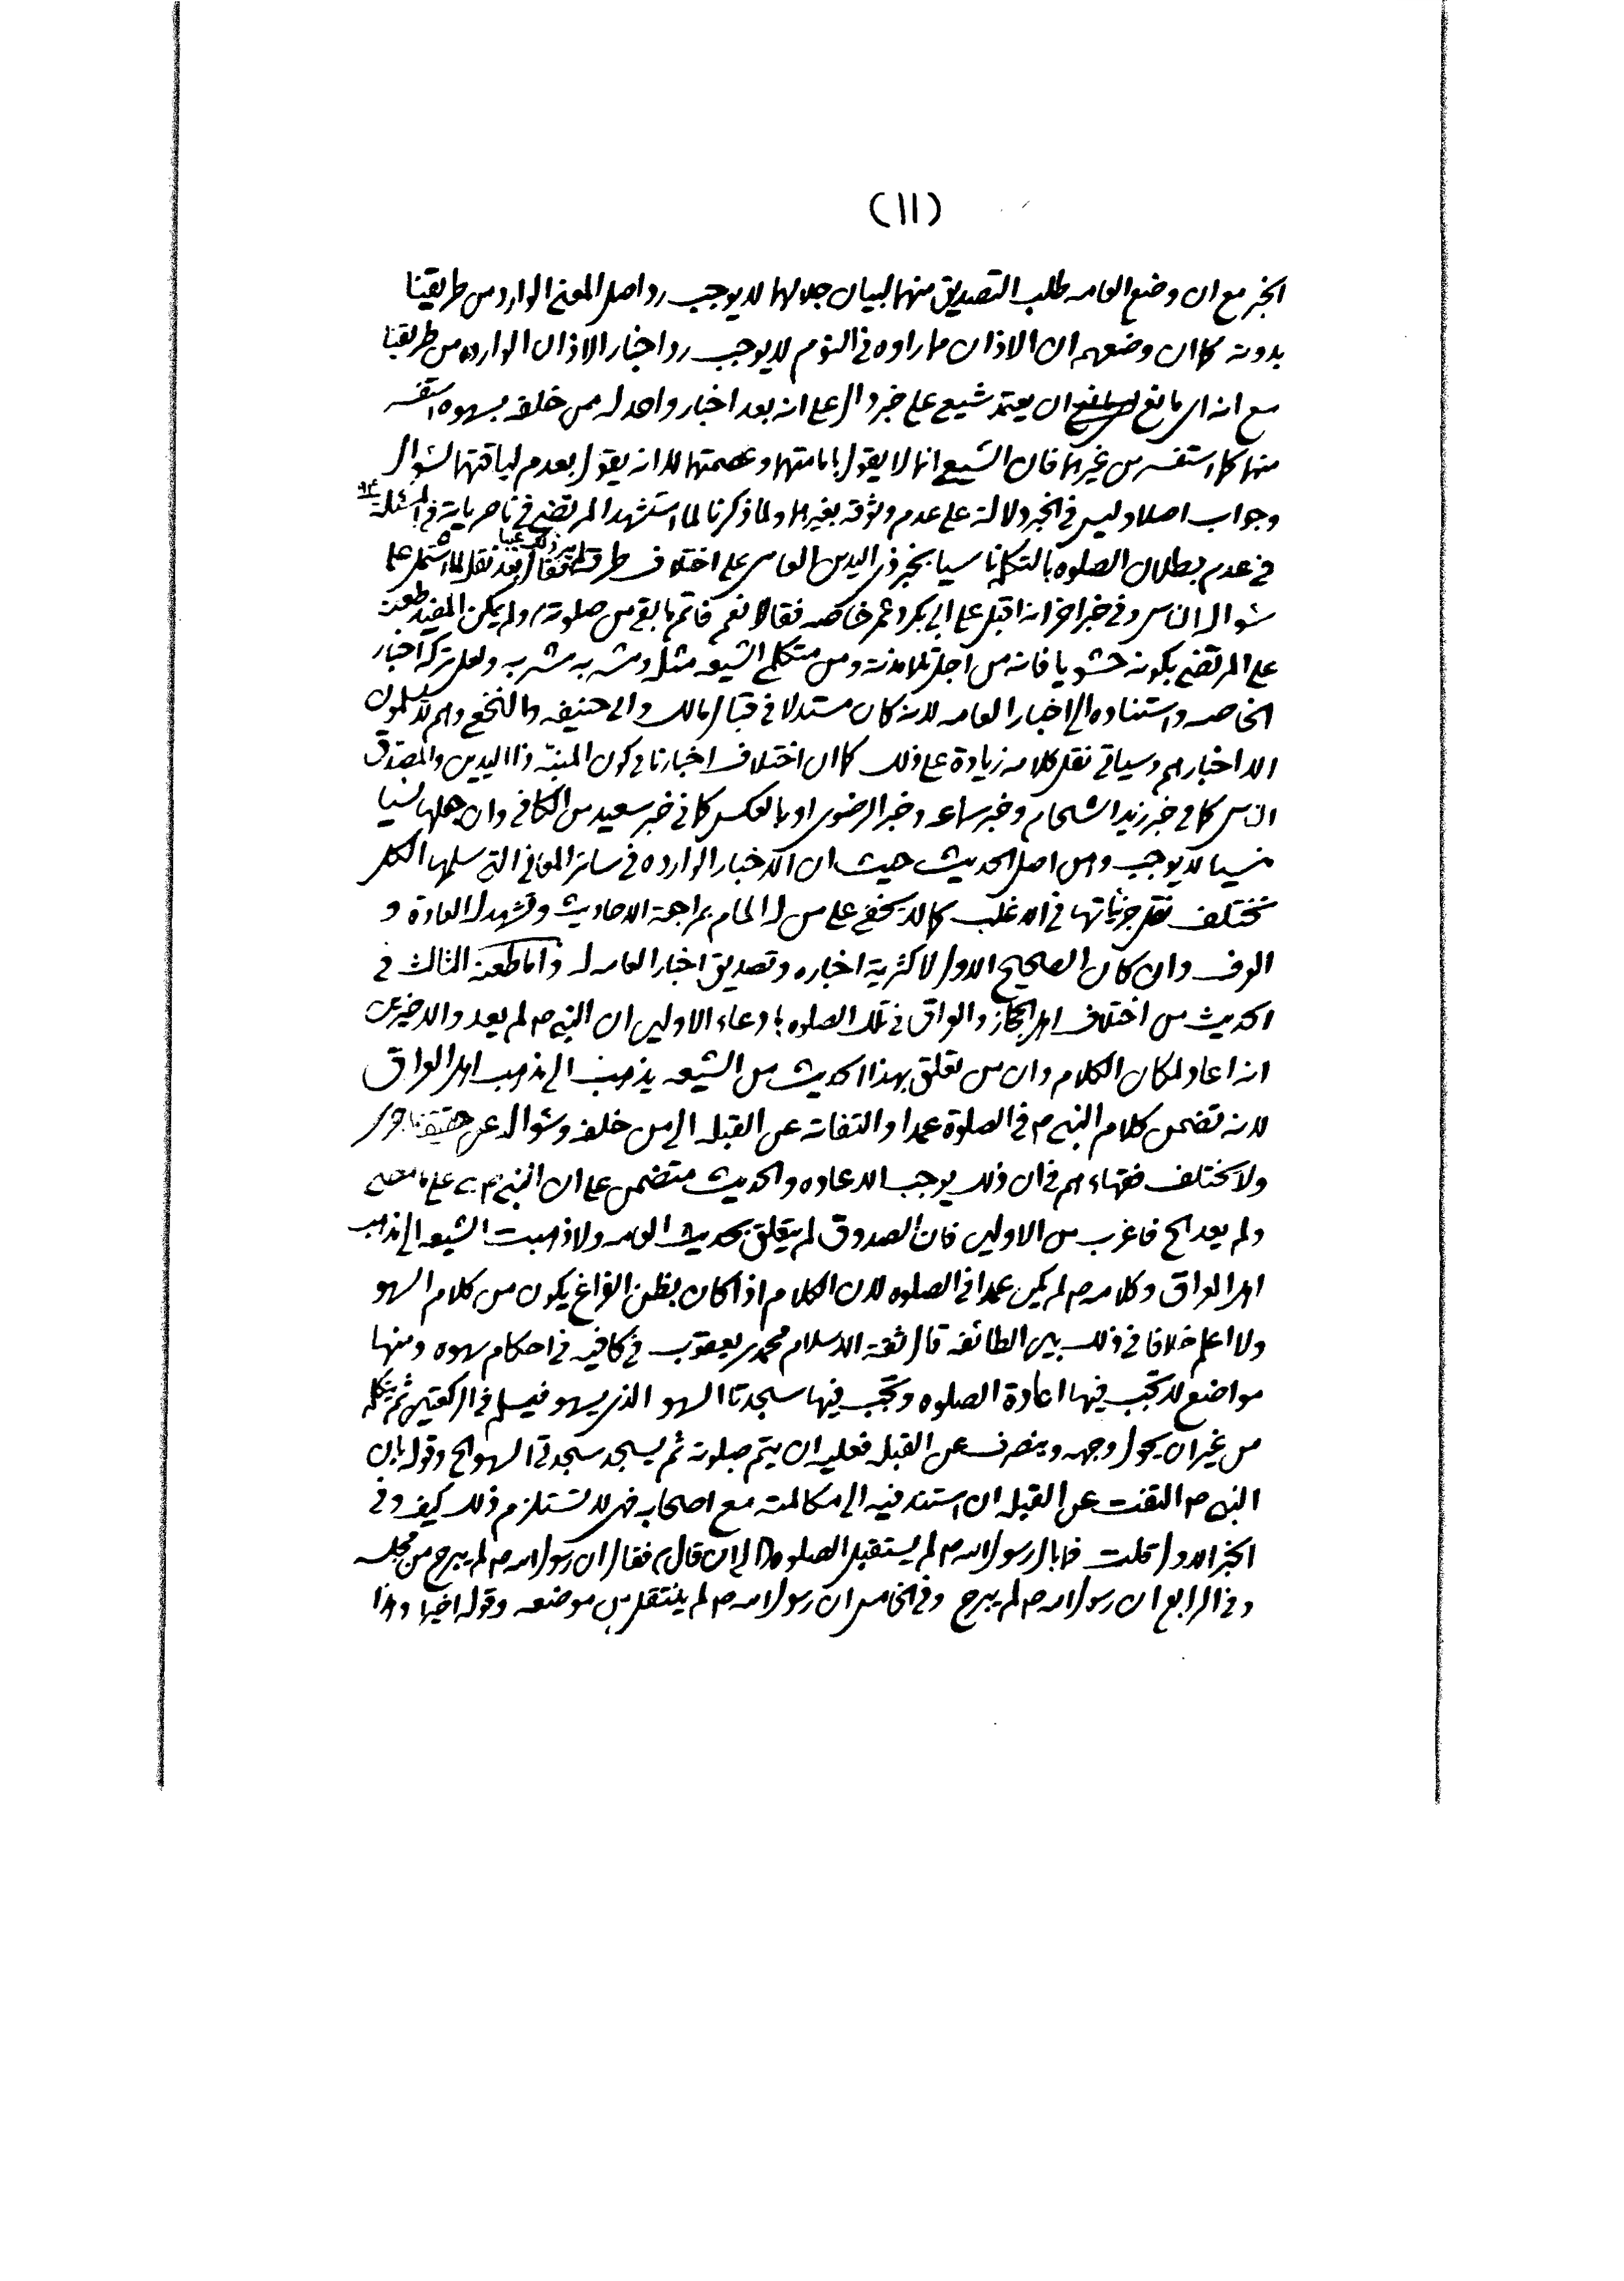 (١١)
الخبر مع ان وضع العامه طلب التصديق منهما لبيان جلالهما لا يوجب رد اصل المعنى الوارد من طريقنا
بدونه كما ان وضعهم ان الاذان مما راوه في النوم لا يوجب رد اخبار الاذان الوارده من طريقنا
مع انه اى مانع ان يعتمد شيعي على خبر دال على انه بعد اخبار واحد له ممن خلفه بسهوه استفسر
منهما كما استفسر من غيرهما فان الشيعي انما لا يقول بامامتهما وعصمتهما لا انه يقول بعدم لياقتهما لسؤال
وجواب اصلا وليس في الخبر دلالة على عدم وثوقه بغيرهما ولما ذكرنا لما استشهد المرتضى في ناصرياته في المسئلة ٩٤
في عدم بطلان الصلوه بالتكلم ناسيا بخبر ذى اليدين العامى على اختلاف طرقه فقال بعد نقل ما اشتمل على
سؤال الناس وفي خبر اخر انه اقبل على ابى بكر وعمر خاصه فقالا نعم فاتم ما بقى من صلوته، ولم يكن المفيد طعن
على المرتضى بكونه حشويا فانه من اجل تلامذته ومن متكلمي الشيعه مثله ومشربه مشربه ولعل تركه اخبار
الخاصه واستناده الى اخبار العامه لانه كان مستدلا في قبال مالك وابى حنيفه والنخعي وهم لا يسلمون
الا اخبارهم وسياتي نقل كلامه زيادة على ذلك كما ان اختلاف اخبارنا في كون المنبّه ذا اليدين والمصدّق
الناس كما في خبر زيد الشحام وخبر سماعه وخبر الرضوى او بالعكس كما في خبر سعيد من الكافي وان جملها نسيا
منسيا لا يوجب وهن اصل الحديث حيث ان الاخبار الوارده في سائر المعاني التى سلمها الكل
تختلف نقل جزئياتها في الاغلب كما لا يخفى على من له المام بمراجعة الاحاديث وتشهد له العادة و
العرف وان كان الصحيح الاول لاكثرية اخباره وتصديق اخبار العامه له واما طعنه الثالث في
الحديث من اختلاف اهل الحجاز والعراق في تلك الصلوه بادعاء الاولين ان النبي ص لم يعد والاخيرين
انه اعاد لمكان الكلام وان من تعلق بهذا الحديث من الشيعه يذهب الى مذهب اهل العراق
لانه تضمن كلام النبي ص في الصلوة عمدا والتفاته عن القبله الى من خلفه وسؤاله عن حقيقة ما جرى
ولا يختلف فقهاءهم في ان ذلك يوجب الاعاده والحديث متضمن على ان النبي ص بنى على ما مضى
ولم يعد الخ فاغرب من الاولين فان الصدوق لم يتعلق بحديث العامه ولا ذهبت الشيعه الى مذهب
اهل العراق وكلامه ص لم يكن عمدا في الصلوه لان الكلام اذا كان بظن الفراغ يكون من كلام السهو
ولا اعلم خلافا في ذلك بين الطائفه قال ثقة الاسلام محمد بن يعقوب في كافيه في احكام سهوه ومنها
مواضع لا تجب فيها اعادة الصلوه وتجب فيها سجدتا السهو الذى يسهو فيسلم في الركعتين ثم يتكلم
من غير ان يحول وجهه وينصرف عن القبله فعليه ان يتم صلوته ثم يسجد سجدتى السهو الخ وقوله بان
النبي ص التفت عن القبله ان استند فيه الى مكالمته مع اصحابه فهى لا تستلزم ذلك كيف وفي
الخبر الاول قلت فما بال رسول الله ص لم يستقبل الصلوه (الى ان قال) فقال ان رسول الله ص لم يبرح من مجلسه
وفي الرابع ان رسول الله ص لم يبرح وفي الخامس ان رسول الله ص لم ينتقل من موضعه وقوله اخيرا وهذا